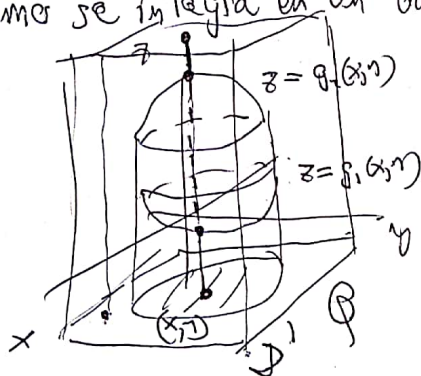 se integra en un
z
z = g₂(x,y)
z = g₁(x,y)
y
x
(x,y)
D
Q